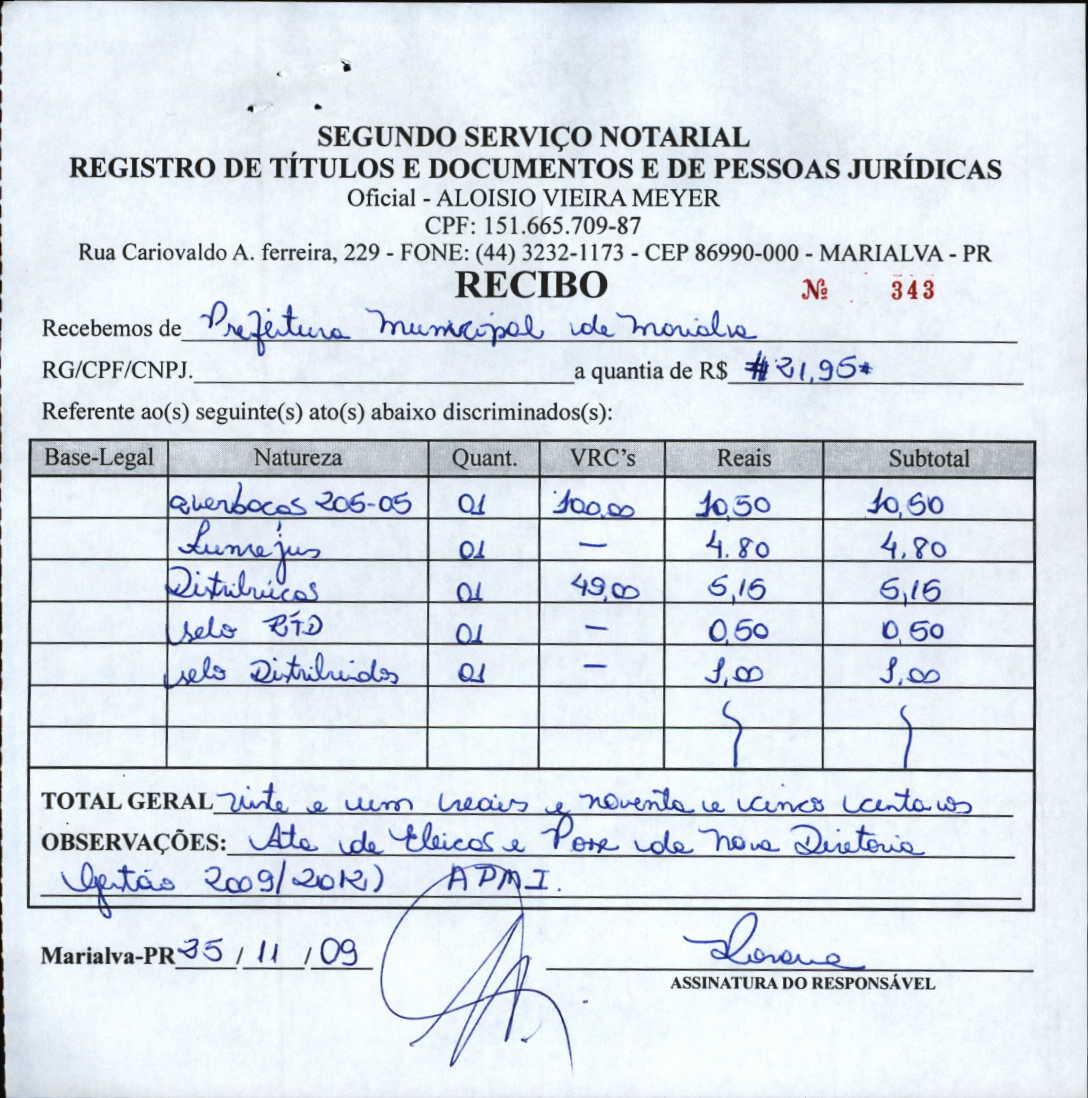 SEGUNDO SERVIÇO NOTARIAL
REGISTRO DE TÍTULOS E DOCUMENTOS E DE PESSOAS JURÍDICAS
Oficial - ALOISIO VIEIRA MEYER
CPF: 151.665.709-87
Rua Cariovaldo A. ferreira, 229 - FONE: (44) 3232-1173 - CEP 86990-000 - MARIALVA - PR
RECIBO № 343
Recebemos de Prefeitura Municipal de Marialva
RG/CPF/CNPJ. a quantia de R$ #21,95*
Referente ao(s) seguinte(s) ato(s) abaixo discriminados(s):
Base-Legal Natureza Quant. VRC's Reais Subtotal
averbacas 205-05 01 100,00 10,50 10,50
Funrejus 01 — 4.80 4.80
Distribuicas 01 49,00 5,15 5,15
selo RTD 01 — 0,50 0,50
selo Distribuidos 01 — 1,00 1,00
TOTAL GERAL vinte e um reais e noventa e cinco centavos
OBSERVAÇÕES: Ata de Eleicas e Posse da Nova Diretoria
Gestão 2009/2012) APMI.
Marialva-PR 25 / 11 / 09
ASSINATURA DO RESPONSÁVEL